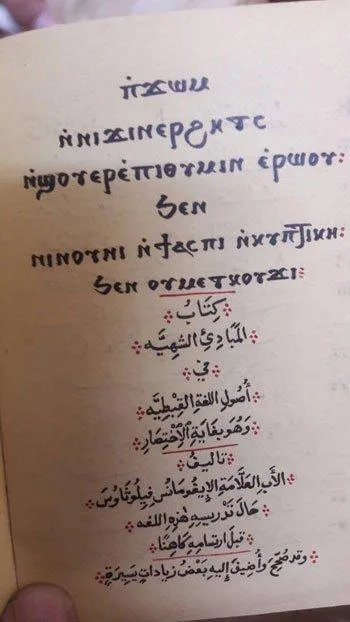 ⲡ̀ϫⲱⲙ
ⲛ̀ⲛⲓϫⲓⲛⲉⲣϩⲏⲧⲥ
ⲛ̀ϣⲟⲩⲉⲣⲉ̀ⲡⲓⲑⲩⲙⲓⲛ ⲉⲣⲱⲟⲩ:
ϧⲉⲛ
ⲛⲓⲛⲟⲩⲛⲓ ⲛ̀ϯⲁⲥⲡⲓ ⲛ̀ⲕⲩⲡϯⲕⲏ:
ϧⲉⲛ ⲟⲩⲙⲉⲧⲕⲟⲩϫⲓ:
كِتَابُ
المَبَادِئِ الشَّهِيَّه
فِي
أُصُولِ اللُّغَةِ القِبْطِيَّه
وَهُوَ بِغَايَةِ الاِخْتِصَارِ
تَالِيفُ
الأَبِ العَلَّامَةِ الإِيغُومَانُس فِيلُوثَاوُسَ
حَالَ تَدْرِيسِهِ هٰذِهِ اللُّغَه
قَبْلَ ارتِسَامِهِ كَاهِنًا
وقد صُحِّحَ وأُضِيفَ إليهِ بَعْضُ زِيَادَاتٍ يَسِيرَةٍ